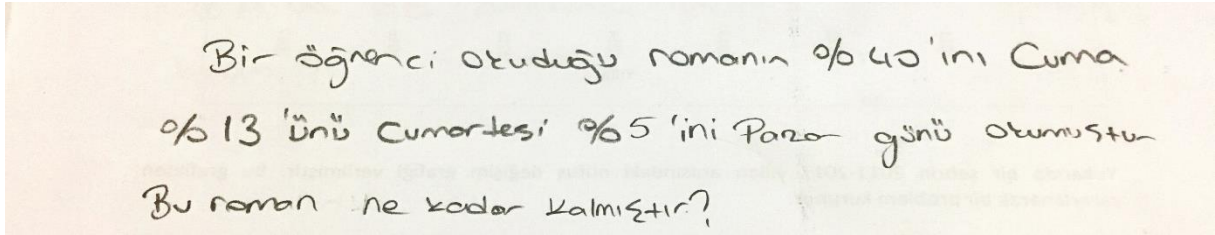 Bir öğrenci okuduğu romanın %40'ını Cuma
%13'ünü Cumartesi %5'ini Pazar günü okumuştur
Bu roman ne kadar kalmıştır?